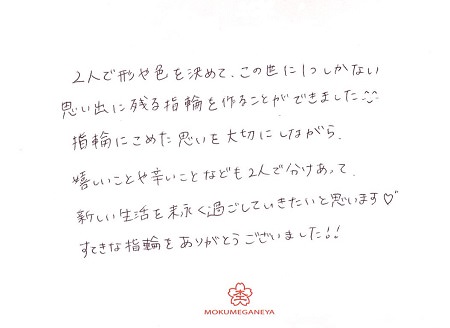 2人で形や色を決めて、この世に1つしかない
思い出に残る指輪を作ることができました^^
指輪にこめた思いを大切にしながら、
嬉しいことや辛いことなども2人で分けあって、
新しい生活を末永く過ごしていきたいと思います♡
すてきな指輪をありがとうございました!!
MOKUMEGANEYA